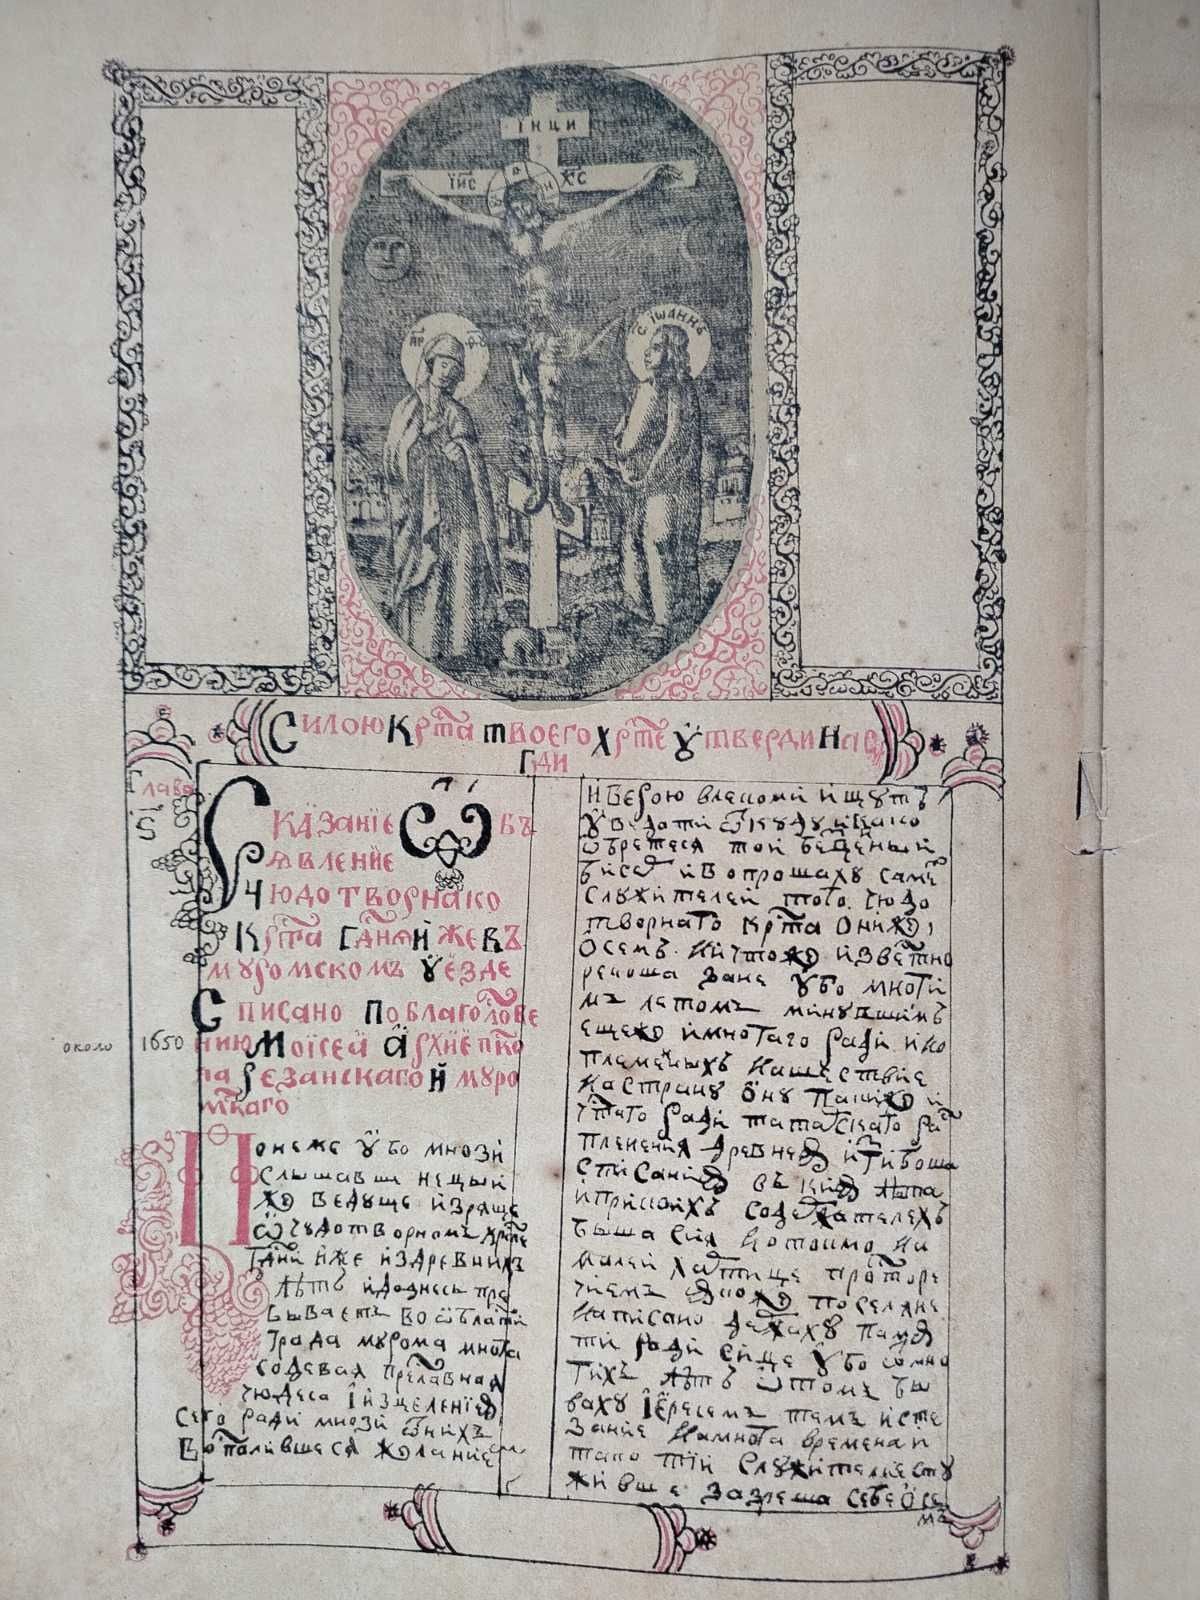 ІНЦИ
ІИС ХС
С ІШАННЪ
Силою Крⷭ҇та твоего Хрⷭ҇те Ѹтверди нас
Гди
Глава
Ѕ
Сказанїе Ѡбъ
явленїе
Чюдотворнако
Крⷭ҇та Гдⷭ҇ня Иже въ
муромскомъ Уезде
Списано по благослове
нию Моїсеа Архиеппⷭ҇ко
па Резанскаго И муро
мⷭ҇каго
около 1650
Понеже Ѹбо мнози
слышавше нецыи
же ведуще и зряще
Ѡ чудотворномъ крⷭ҇те
Гдⷭ҇ни иже издревнихъ
лѣтъ и доднесь пре
бываетъ во Ѡбласти
града мурома многа
содевая преславная
чюдеса і изцеления
Сего ради мнози Ѿ нихъ
вополившеся желание
И верою влекоми ищутъ
Ѹведати Ѿкуду и како
Ѡбретеся той безценый
бисеръ и вопрошаху самехъ
служителей того чюдо
творнаго крⷭ҇та Они же,
Ѡ семъ ничтоже известно
рекоша зане Ѹбо многи
мъ летомъ минувшимъ
еще же и многаго ради ино
племенныхъ нашествие
на страну Ѡну паче же и
частаго ради татарскаго ра
пленения древнея и гибоша
списания въ кия лѣта
и при коихъ содержателехъ
быша сия но токмо на
малей хартице просторе
чиемъ яко же поселяне
написано держаху памя
ти ради сице Ѹбо Ѿ мно
гихъ лѣтъ Ѡ томъ бы
ваху Иереемъ темъ исте
зание на многа времена и
тако тии служителие сту
живше зазреша себе Ѡ се
мъ